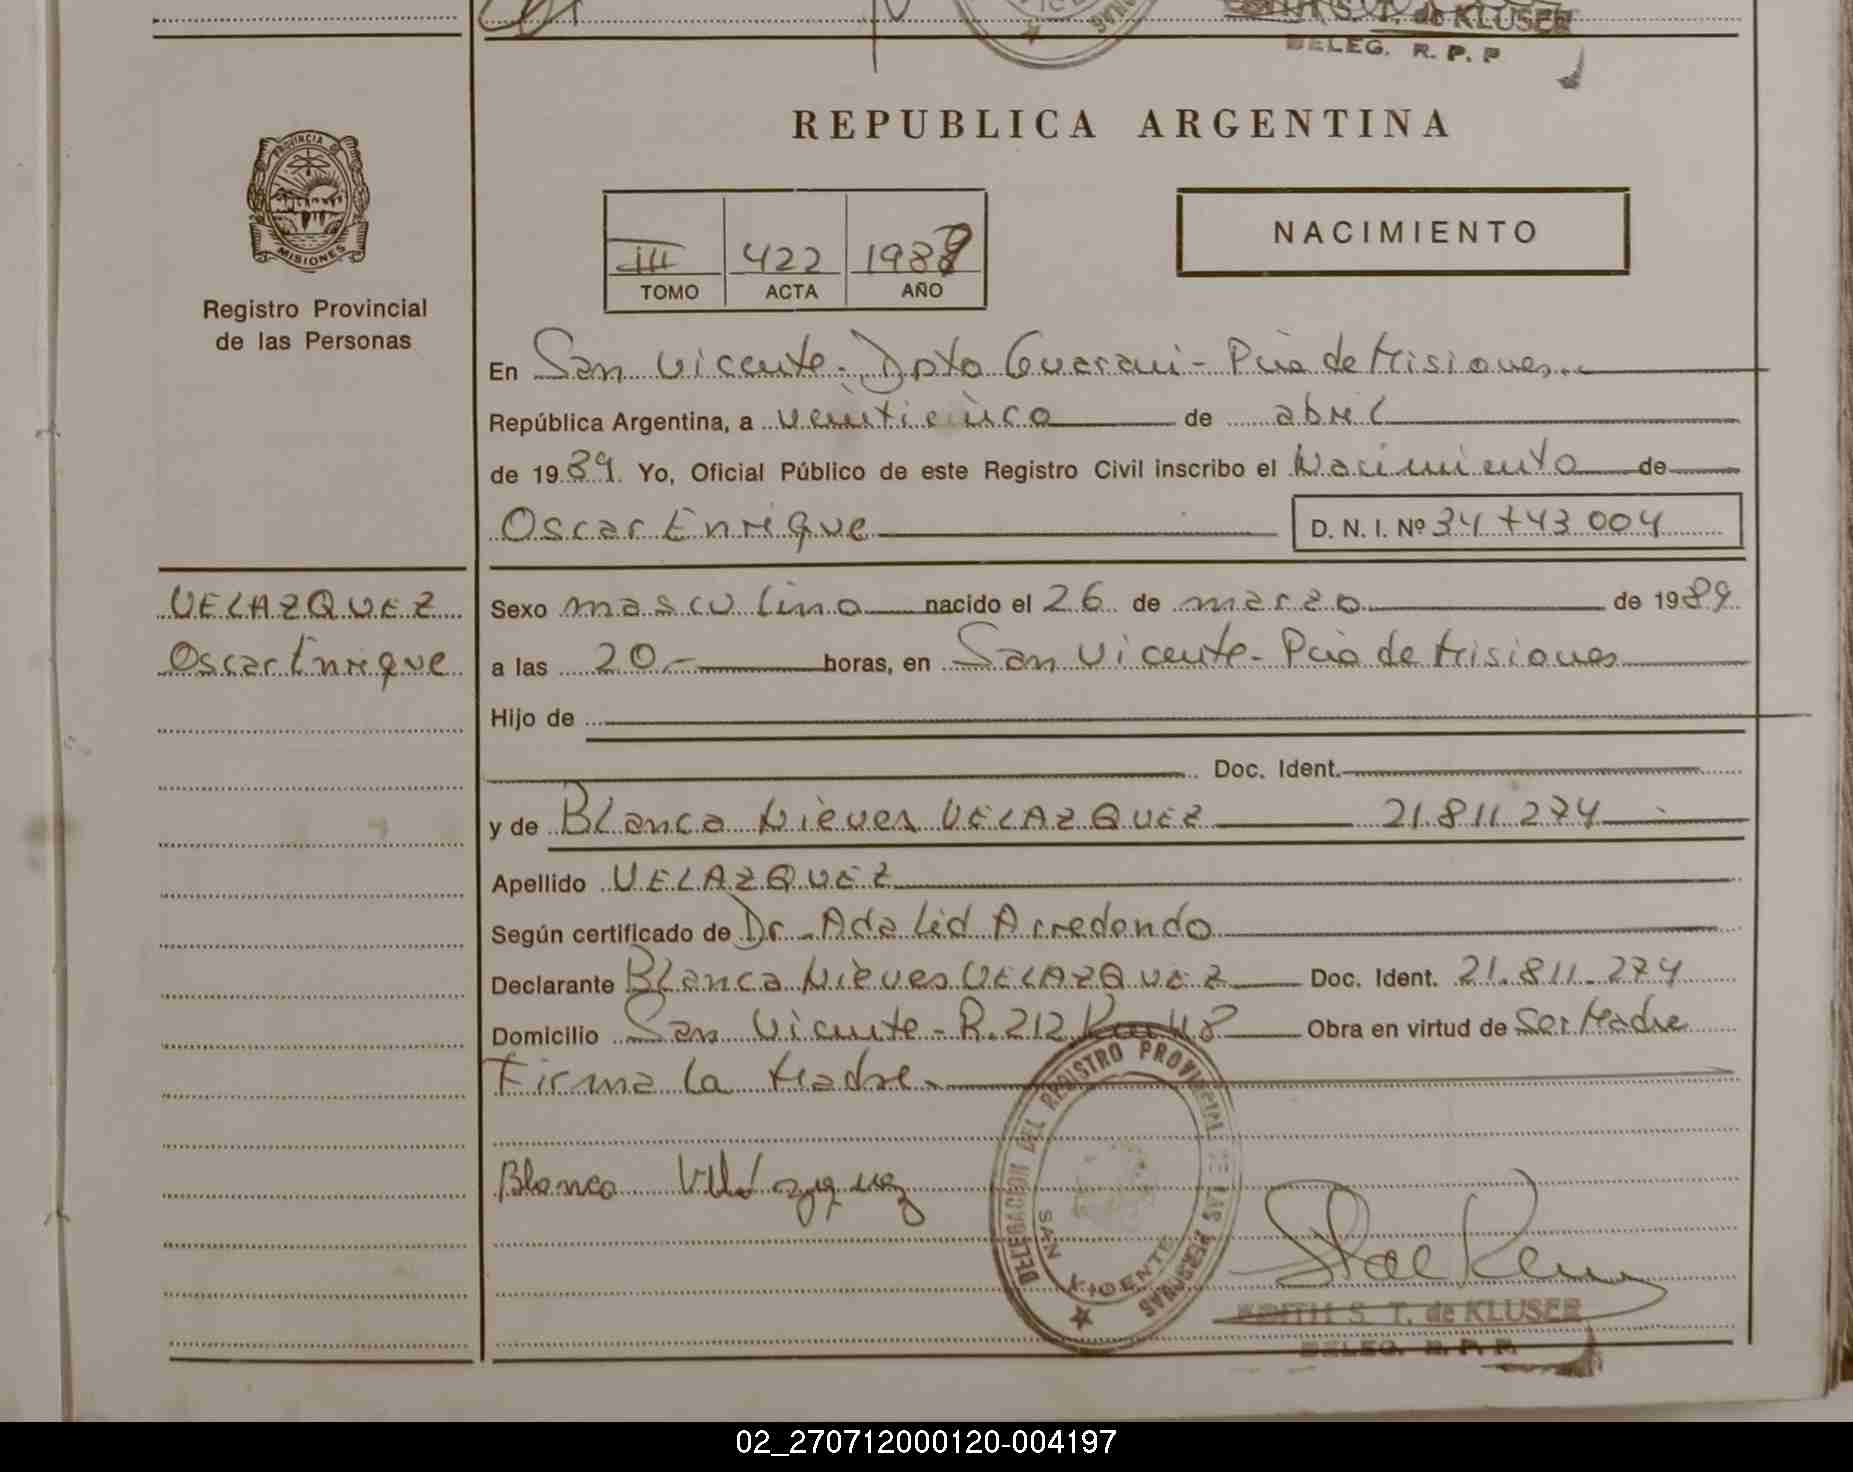 EDITH S. T. de KLUSER
DELEG. R. P. P
REPUBLICA ARGENTINA
PROVINCIA
MISIONES
Registro Provincial
de las Personas
III 422 1989
TOMO ACTA AÑO
NACIMIENTO
En San Vicente - Dpto Guarani - Pcia de Misiones
República Argentina, a veinticinco de abril
de 1989. Yo, Oficial Público de este Registro Civil inscribo el Nacimiento de
Oscar Enrique D. N. I. Nº 34 743 004
VELAZQUEZ
Oscar Enrique
Sexo masculino nacido el 26 de marzo de 1989
a las 20 horas, en San Vicente - Pcia de Misiones
Hijo de
Doc. Ident.
y de Blanca Nieves VELAZQUEZ 21.811.274
Apellido VELAZQUEZ
Según certificado de Dr. Adalid Arredondo
Declarante Blanca Nieves VELAZQUEZ Doc. Ident. 21.811.274
Domicilio San Vicente - R. 212 Km 48 Obra en virtud de Ser Madre
Firma la Madre
Blanca Velázquez
DELEGACION DEL REGISTRO PROVINCIAL DE LAS PERSONAS
SAN VICENTE
EDITH S. T. de KLUSER
DELEG. R. P. P.
02_270712000120-004197